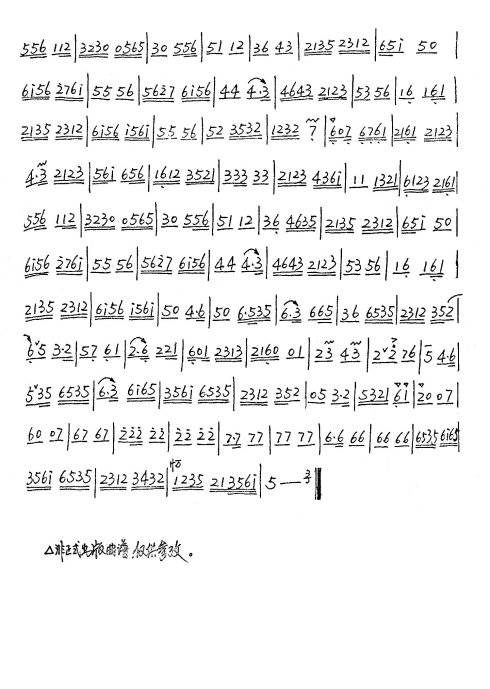 556 112 | 3230 0565 | 30 556 | 51 12 | 36 43 | 2135 2312 | 65i 50 |
6i56 276i | 55 56 | 5627 6i56 | 44 4·3 | 4643 2123 | 53 56 | 16 161 |
2135 2312 | 6i56 i56i | 55 56 | 52 3532 | 1232 7 | 607 6761 | 2161 2123 |
4·3 2123 | 56i 656 | 1612 3521 | 333 33 | 2123 436i | 11 1321 | 6123 2161 |
556 112 | 3230 0565 | 30 556 | 51 12 | 36 4635 | 2135 2312 | 65i 50 |
6i56 276i | 55 56 | 5627 6i56 | 44 4·3 | 4643 2123 | 53 56 | 16 161 |
2135 2312 | 6i56 i56i | 50 4·6 | 50 6·535 | 6·3 665 | 36 6535 | 2312 352 |
6ˇ5 3·2 | 57 61 | 2·6 221 | 601 2313 | 2160 01 | 23 43 | 2ˇ2 76 | 5 4·6 |
5ˇ35 6535 | 6·3 6i65 | 356i 6535 | 2312 352 | 05 3·2 | 5321 61 | 20 07 |
60 07 | 67 67 | 222 22 | 222 22 | 7·7 77 | 77 77 | 6·6 66 | 66 66 | 6535 6i65 |
356i 6535 | 2312 3432 | 1235 21356i | 5 —
△非正式出版曲谱,仅供参改。